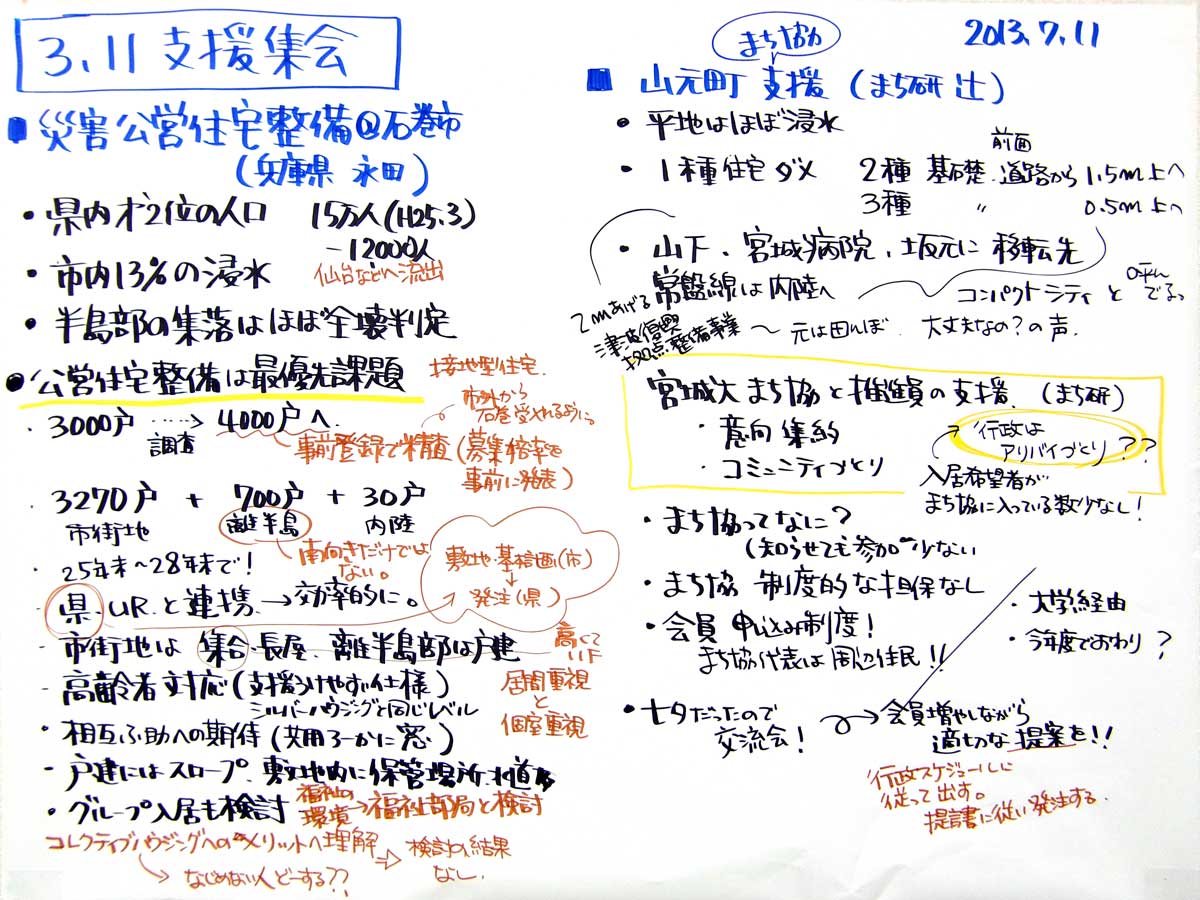 3.11 支援集会
■ 災害公営住宅整備@石巻市
(兵庫県 永田)
・県内オ2位の人口 15万人(H25.3)
-12000人
・市内13%の浸水 仙台などへ流出
・半島部の集落はほぼ全壊判定
●公営住宅整備は最優先課題
接地型住宅
・3000戸 ‥‥> 4000戸へ
調査
市外から
石巻受入れるように。
事前登録で精査(募集倍率を
事前に発表)
3270戸 + 700戸 + 30戸
市街地 離半島 内陸
南向きだけでは
ない。
・25年末〜28年末で!
敷地・基本計画(市)
↓
発注(県)
- 県、URと連携 →効率的に。
- 市街地は 集合・長屋、離半島部は戸建
高くて
- 高齢者対応(支援うけやすい仕様)
シルバーハウジングと同じレベル
居間重視
と
個室重視
・相互ふ助への期待(共用ろーかに窓)
・戸建にはスロープ、敷地内に保管場所
・グループ入居も検討
福祉の
環境 →福祉部局と検討
コレクティブハウジングへのメリットへ理解
⇒ 検討の結果
なし。
→ なじめない人どーする??
2013.7.11
まち協
■ 山元町 支援 (まち研 辻)
・平地はほぼ浸水
・1種住宅ダメ 2種 基礎 前面道路から1.5m上へ
3種 〃 0.5m上へ
・山下、宮城病院、坂元に 移転先
2mあげる 常盤線は内陸へ
コンパクトシティと
津波復興
拠点整備事業 〜 元は田んぼ、大丈夫なの?の声.
宮城大 まち協と推進員の支援 (まち研)
・意向集約
・コミュニティづくり
→行政は
アリバイづくり??
入居希望者が
まち協に入っている数少なし!
・まち協ってなに?
(知らせても参加少ない
・まち協 制度的な担保なし
・会員 申込み制度!
まち協代表は周辺住民!!
・大学経由
・今年度でおわり?
・七夕だったので
交流会!
→会員増やしながら
適切な提案を!!
行政スケジュールに
従って出す。
提書に従い発注する.